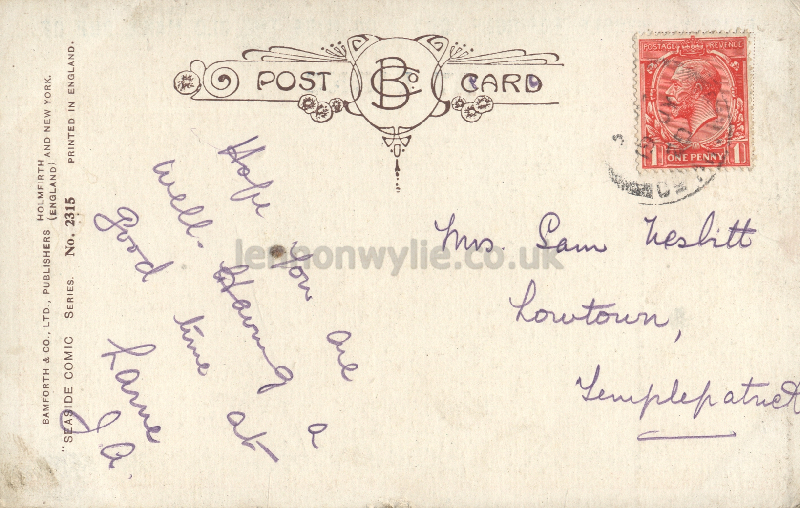 POST CARD
B Co.
POSTAGE REVENUE
1 ONE PENNY 1
BAMFORTH & CO., LTD., PUBLISHERS HOLMFIRTH (ENGLAND) AND NEW YORK.
"SEASIDE COMIC SERIES. No. 2315 PRINTED IN ENGLAND.
Hope you are
well. Having a
good time at
Larne
J.A.
Mrs. Sam Nesbitt
Lowtown,
Templepatrick
lennonwylie.co.uk